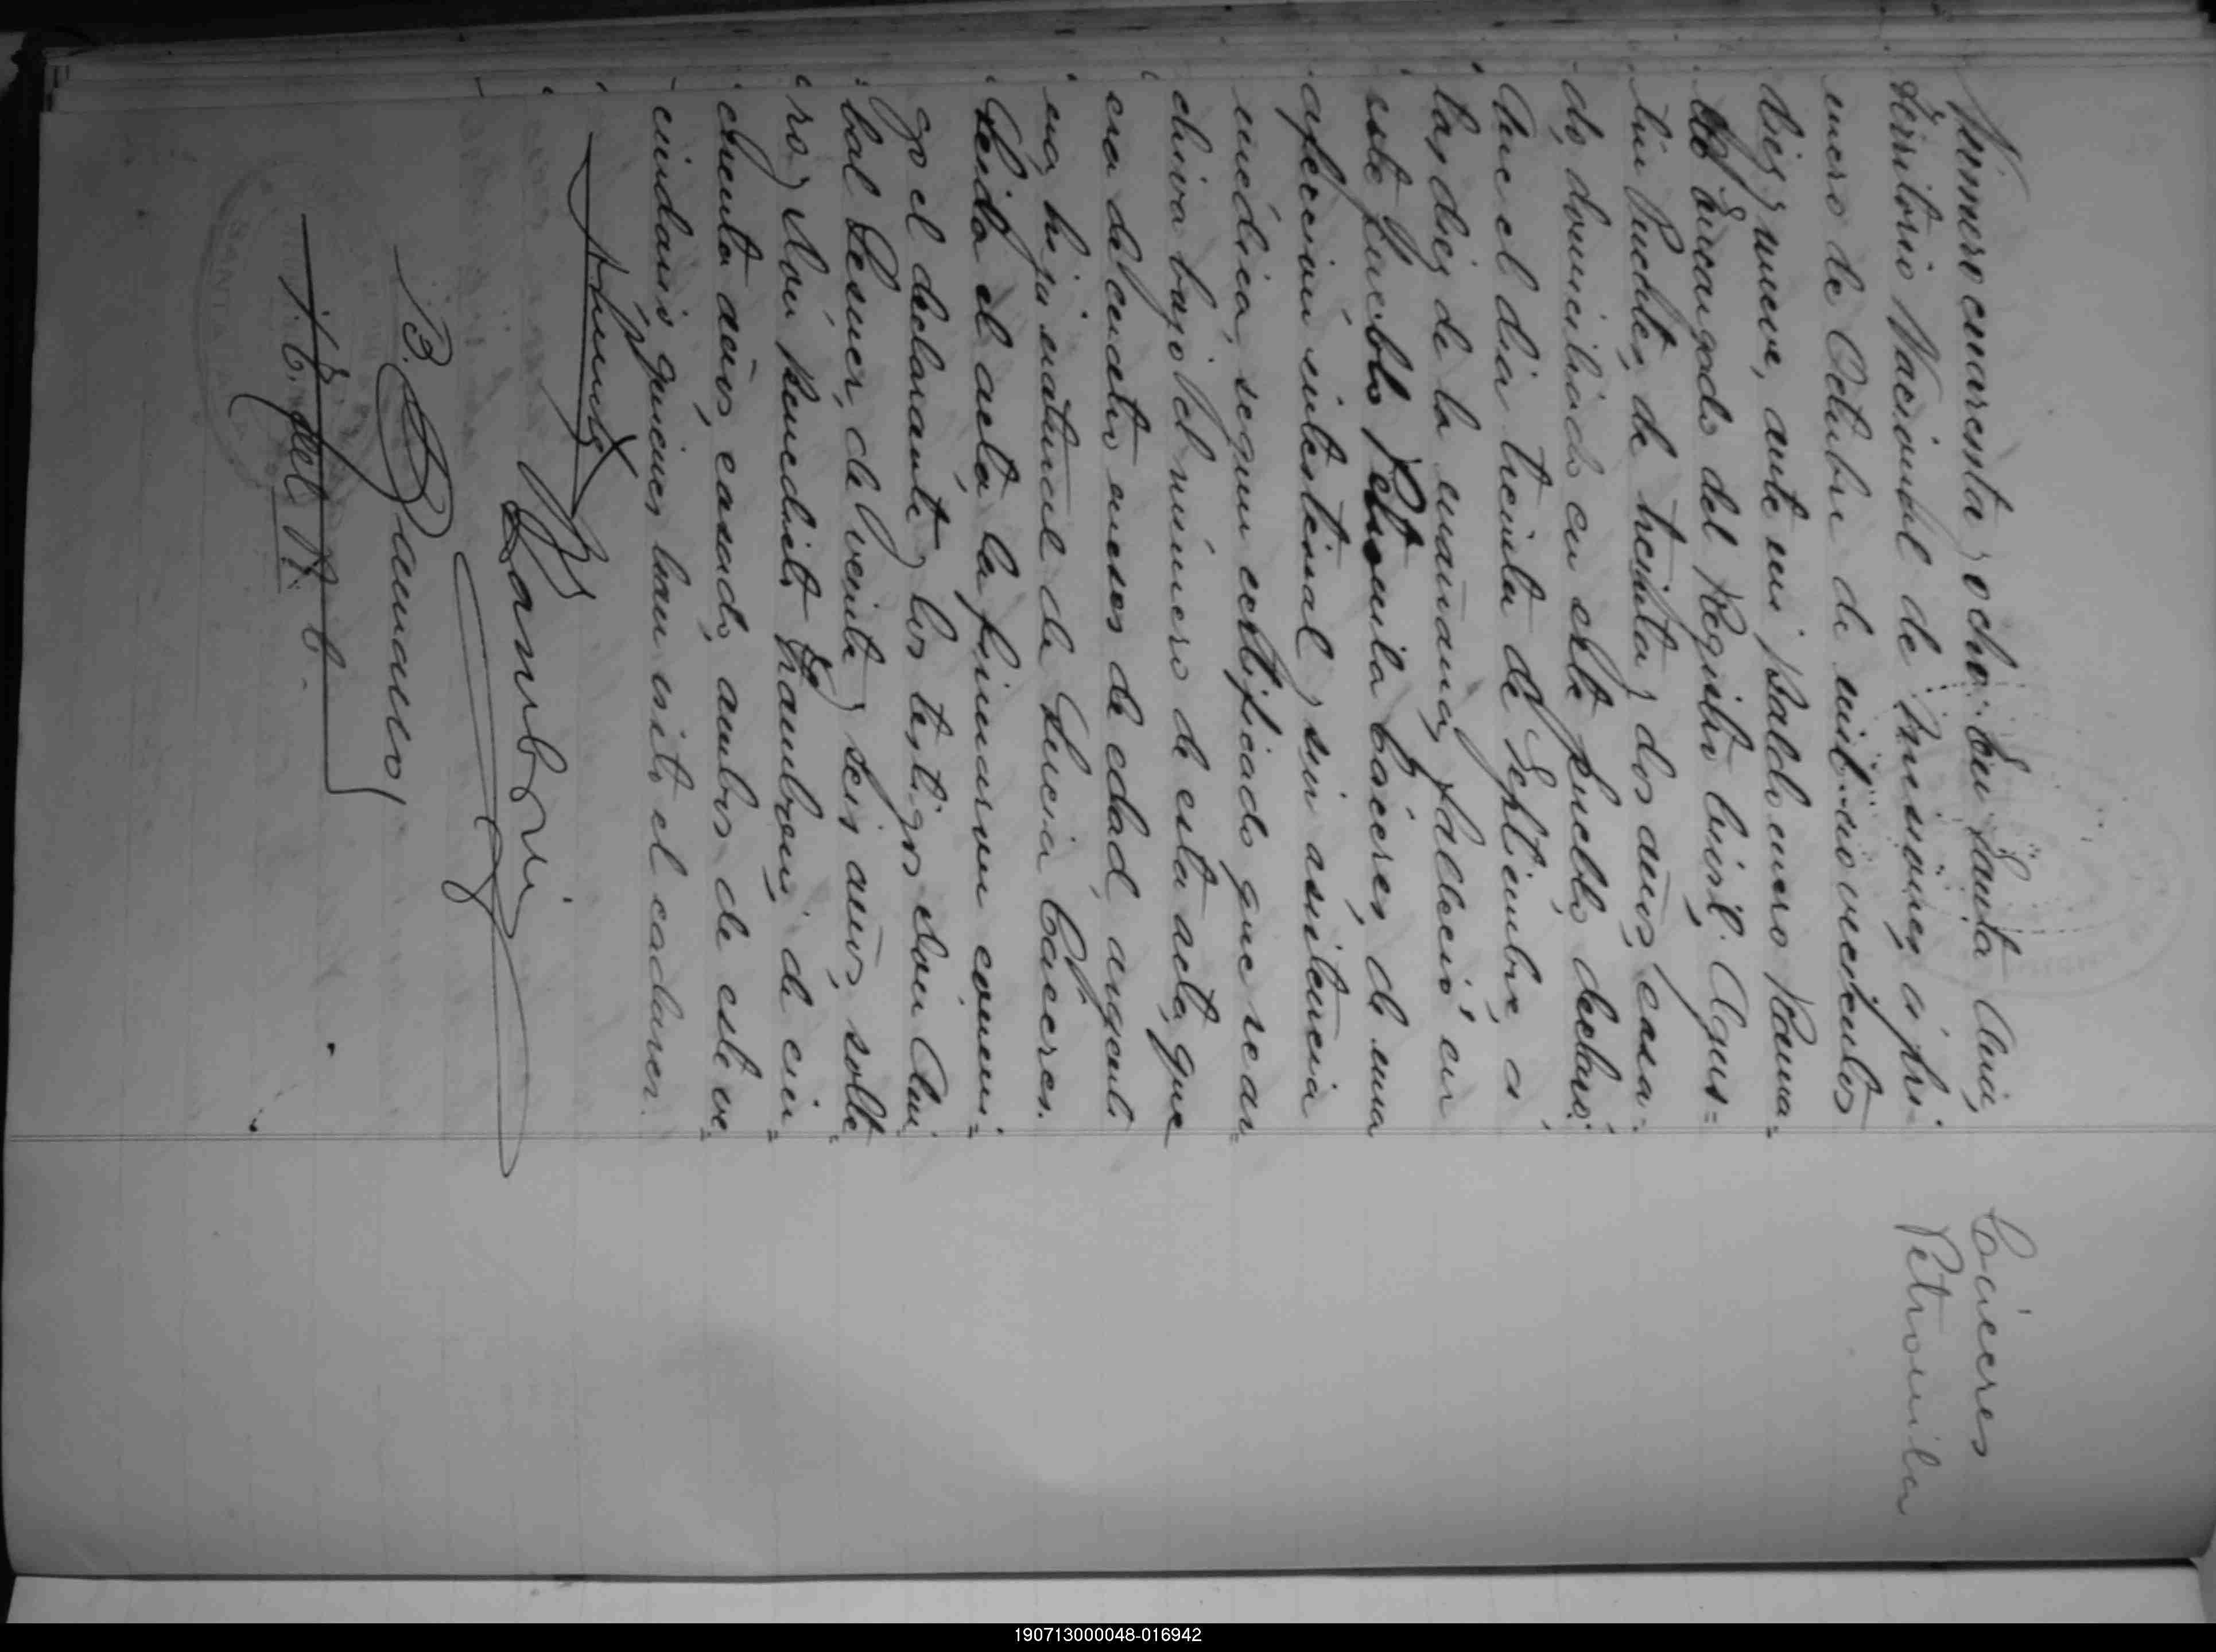 Número cuarenta y ocho: En Santa Ana,
Territorio Nacional de Misiones, a pri
mero de Octubre de mil novecientos
diez y nueve, ante mi Baldomero Rama=
llo Encargado del Registro Civil. Agus=
tin Puchite, de treinta y dos años, casa=
do, domiciliado en este pueblo, declaró:
Que el dia treinta de Septiembre, a
las diez de la mañana, falleció en
este pueblo Petronila Cáceres, de una
afección intestinal y sin asistencia
médica, segun certificado que se ar=
chiva bajo el número de esta acta, que
era de cuatro meses de edad, argenti
na, hija natural de Lucia Cáceres.
Leida el acta, la firmaron conmi=
go el declarante y los testigos don
bal Lesner, de veinte y seis años, solte
ro, y don Benedicto Zambroni, de cin
cuenta años, casado, ambos de este ve
cindario, quienes han visto el cadaver.
Zambroni
B.
J. del R. C.
Cáceres
Petronila
190713000048-016942